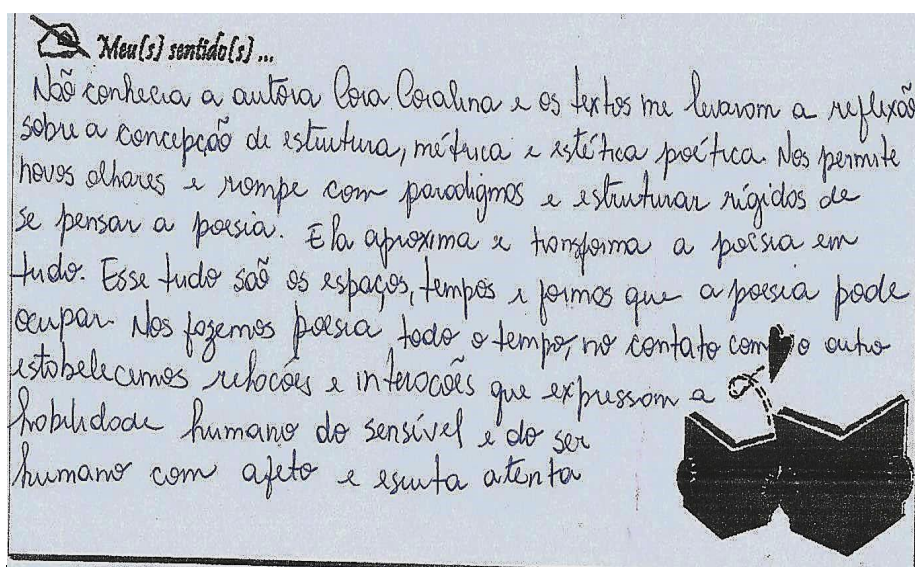 Meu(s) sentido(s)...
Não conhecia a autora Cora Coralina e os textos me levaram a reflexão
sobre a concepção de estrutura, métrica e estética poética. Nos permite
novos olhares e rompe com paradigmas e estruturar rígidos de
se pensar a poesia. Ela aproxima e transforma a poesia em
tudo. Esse tudo são os espaços, tempos e formas que a poesia pode
ocupar. Nos fazemos poesia todo o tempo, no contato com o outro
estabelecemos relacões e interacões que expressam a
habilidade humano do sensível e do ser
humano com afeto e escuta atenta